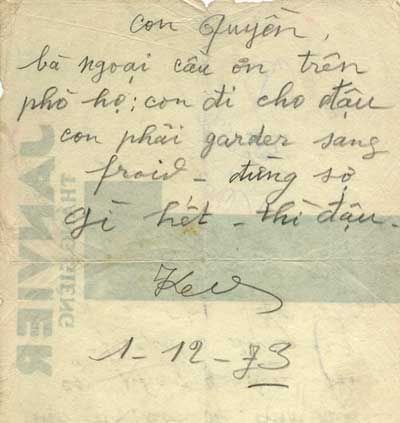 con Quyên,
bà ngoại cầu ơn trên
phò hộ; con đi cho đậu
con phải garder sang
froid - đừng sợ
gì hết - thì đậu -
1-12-73
JANVIER
THÁNG GIÊNG